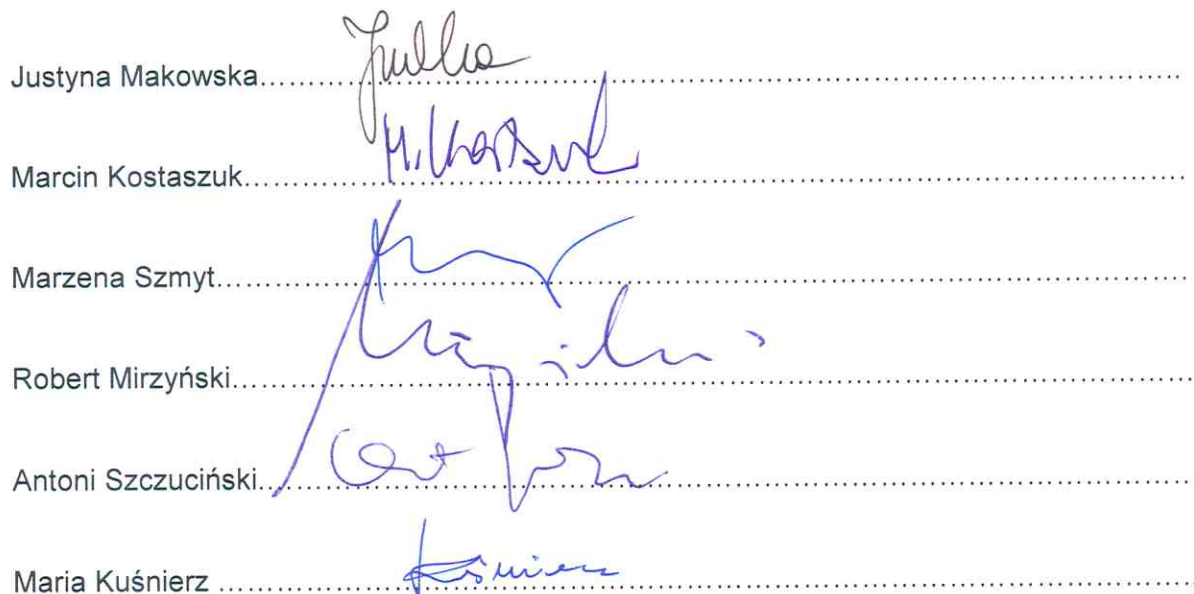 Justyna Makowska................................................................
Marcin Kostaszuk................................................................
M. Kostaszuk
Marzena Szmyt................................................................
Robert Mirzyński................................................................
Antoni Szczuciński................................................................
Maria Kuśnierz ................................................................
Kuśnierz